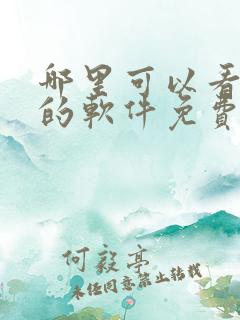 哪里可以看
的軟件免費
何毅亭
未经同意禁止转载